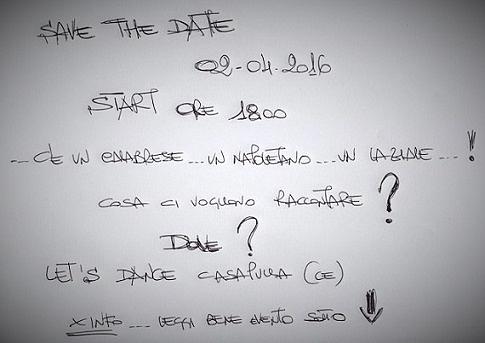 SAVE THE DATE
02-04-2016
START ORE 1800
... C'E UN CALABRESE ... UN NAPOLETANO ... UN LAZIALE ... !
COSA CI VOGLIONO RACCONTARE ?
DOVE ?
LET'S DANCE CASAPULLA (CE)
X INFO ... LEGGI BENE EVENTO SOTTO